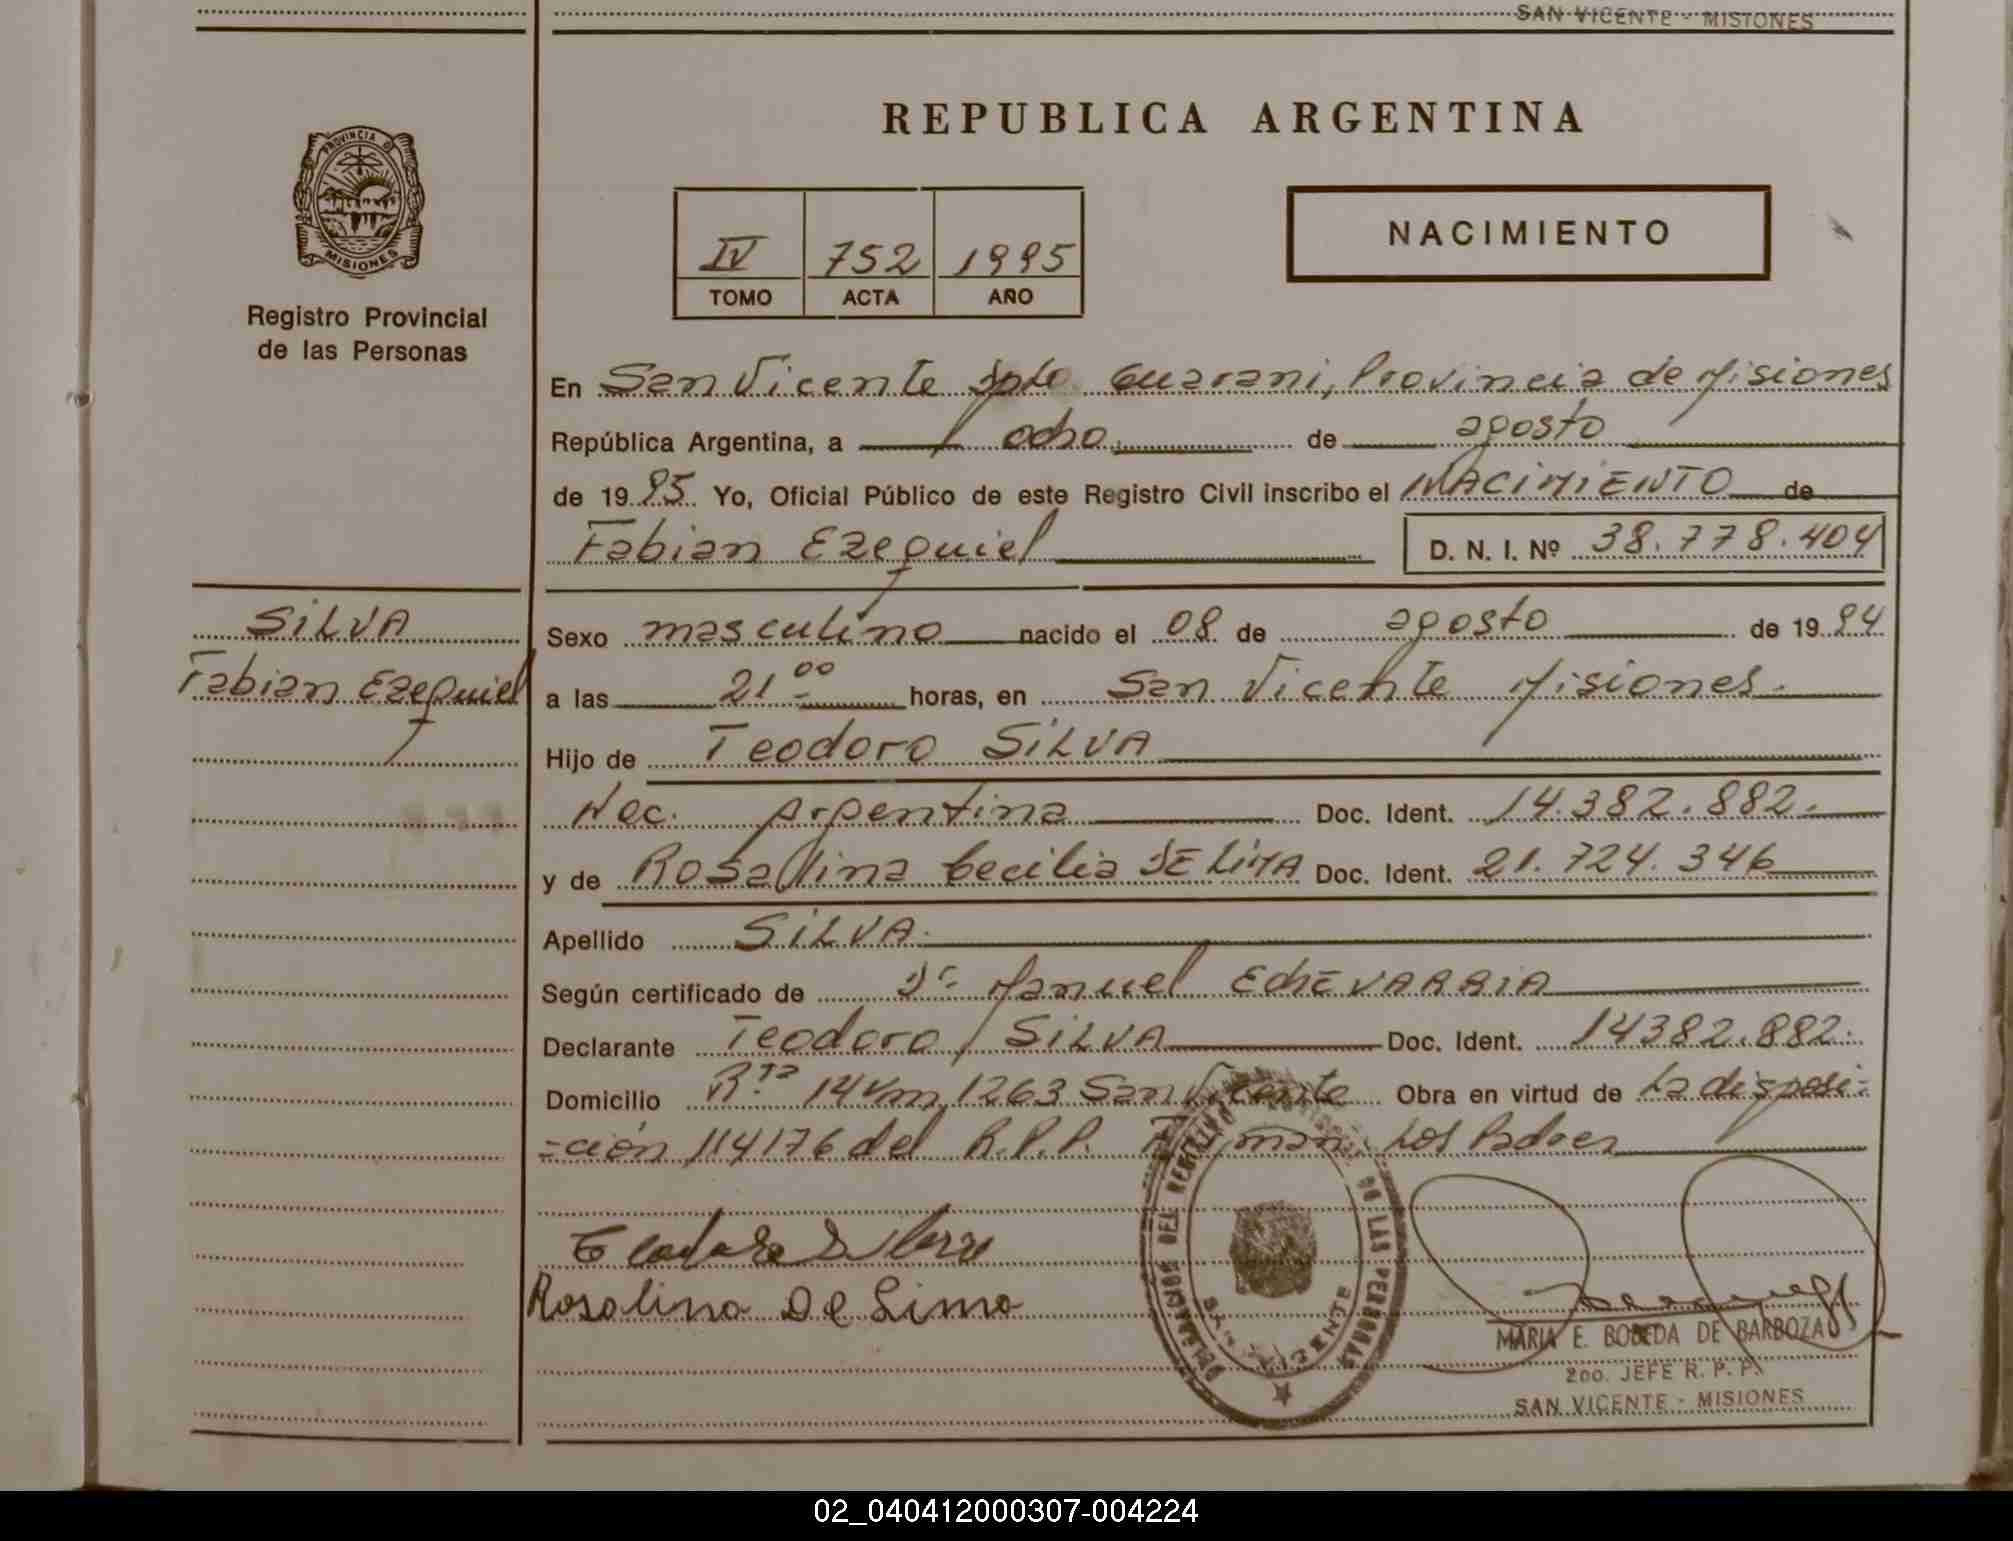 SAN VICENTE - MISIONES
REPUBLICA ARGENTINA
PROVINCIA D
MISIONES
Registro Provincial
de las Personas
IV 752 1995
TOMO ACTA AÑO
NACIMIENTO
En San Vicente Dpto. Guarani, Provincia de Misiones
República Argentina, a ocho de agosto
de 1995 Yo, Oficial Público de este Registro Civil inscribo el NACIMIENTO de
Fabian Ezequiel D. N. I. Nº 38.778.404
SILVA
Fabian Ezequiel
Sexo masculino nacido el 08 de agosto de 1994
a las 21 00 horas, en San Vicente Misiones.
Hijo de Teodoro SILVA
Nac. Argentina Doc. Ident. 14.382.882.
y de Rosalina Cecilia DE LIMA Doc. Ident. 21.724.346
Apellido SILVA.
Según certificado de Dr. Manuel ECHEVARRIA
Declarante Teodoro SILVA Doc. Ident. 14382.882.
Domicilio R.ta 14 km 1263 San Vicente Obra en virtud de La disposi-
-ción 114176 del R.P.P. Firman: Los Padres
Rosalina De Lima
DELEGACION DEL REGISTRO DE LAS PERSONAS
SAN VICENTE
MARIA E. BOBEDA DE BARBOZA
2do. JEFE R. P. P.
SAN VICENTE - MISIONES
02_040412000307-004224